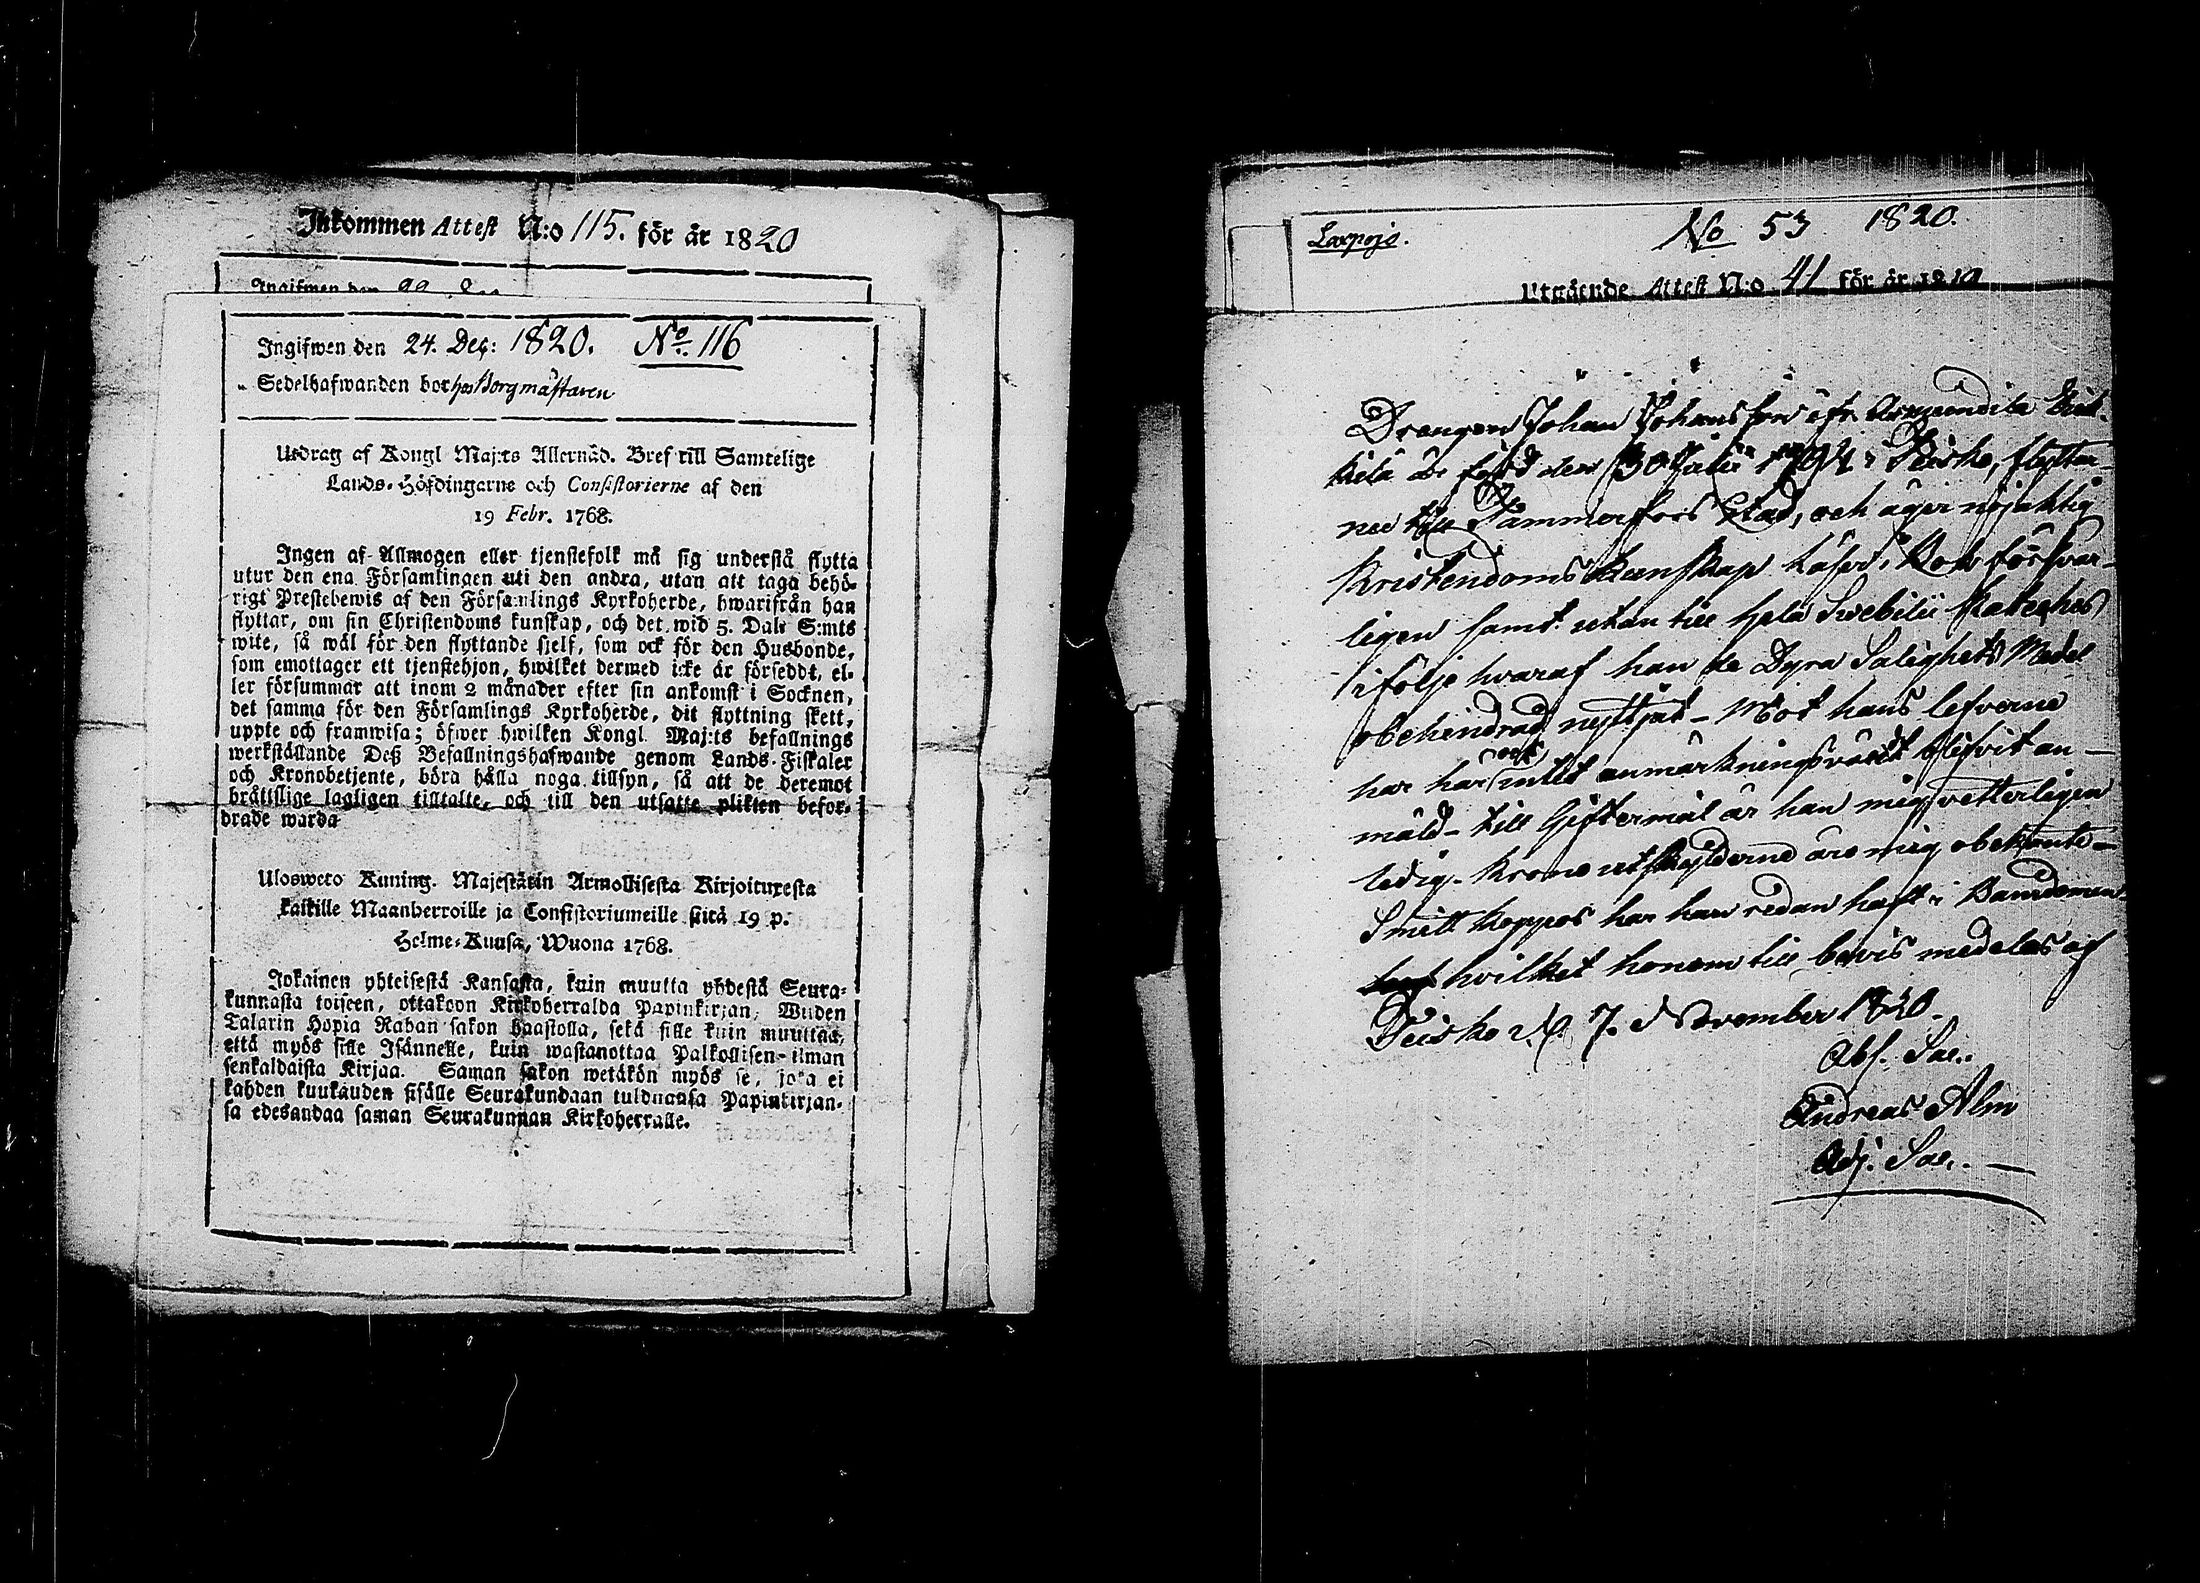 Inkommen Attest N:o 115. för år 1820
Ingifwen den 22
Ingifwen den 24. Dec: 1820. No. 116
Sedelhafwanden bor hos Borgmästaren
Utdrag af Kongl Maj:ts Allernåd. Bref till Samtelige
Lands-Höfdingarne och Consistorierne af den
19 Febr. 1768.
Ingen af Allmogen eller tjenstefolk må sig understå flytta
utur den ena Församlingen uti den andra, utan att taga behö-
rigt Prestebewis af den Församlings Kyrkoherde, hwarifrån han
flyttar, om sin Christendoms kunskap, och det wid 5. Dalr S:mts
wite, så wäl för den flyttande sjelf, som ock för den Husbonde,
som emottager ett tjenstehjon, hwilket dermed icke är försedt, el-
ler försummar att inom 2 månader efter sin ankomst i Socknen,
det samma för den Församlings Kyrkoherde, dit flyttning skett,
uppte och framwisa; öfwer hwilken Kongl. Maj:ts befallnings
werkställande Deß Befallningshafwande genom Lands-Fiskaler
och Kronobetjente, böra hålla noga tillsyn, så att de deremot
bråttslige lagligen tilltalte, och till den utsatte plikten befor-
drade warda
Ulosweto Kuning. Majestätin Armollisesta Kirjoituxesta
kaikille Maanherroille ja Consistoriumeille siitä 19 p.
Helme-Kuusa, Wuona 1768.
Jokainen yhteisestä Kansasta, kuin muutta yhdestä Seura-
kunnasta toiseen, ottakoon Kirkoherralda Papinkirjan, Wiiden
Talarin Hopia Rahan sakon haastolla, sekä sille kuin muuttaa,
että myös sille Isännelle, kuin wastanottaa Palkollisen ilman
senkaldaista Kirjaa. Saman sakon wetäkön myös se, joka ei
kahden kuukauden sisälle Seurakundaan tulduansa Papinkirjan-
sa edesandaa saman Seurakunnan Kirkoherralle.
Laxpojo.
No 53 1820.
Utgående Attest N:o 41 för år 1810
Drängen Johan Johansson ifr.
är född den 30 Julii 1794 i Teisko, flyttar
nu till Tammerfors Stad, och äger nöjaktig
Kristendoms Kunskap läser i Bok försvar-
ligen samt utan till hela Swebilii Kateches
i följe hvaraf han de Dyra Salighets Medel
obehindrad nyttjat - Mot hans lefverne
har här ock intet anmärkningsvärdt blifvit an-
mäldt - till Giftermål är han mig vetterligen
ledig. Krono utskylderne äro mig obekante -
Smitt Koppor har han redan haft i Barndomen
hvilket honom till bevis medelas af
Teisko d. 7. November 1820.
Abs. Sac.
Andreas Alm
Adj. Sac. -